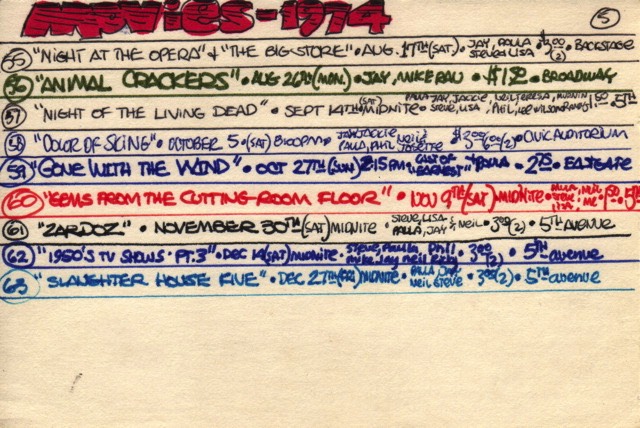 MOVIES-1974
5
55 "NIGHT AT THE OPERA" & "THE BIG STORE" • AUG. 17TH (SAT) • JAY, PAULA STEVE & LISA • $3.00 (2) • BACKSTAGE
56 "ANIMAL CRACKERS" • AUG 26TH (MON.) • JAY, MIKE RAU • $1.12 • BROADWAY
57 "NIGHT OF THE LIVING DEAD" • SEPT 14TH (SAT) MIDNITE • PAULA, JAY, JACKIE, NEIL, TERESA, STEVE, LISA, PHIL, LEE WILSON • 1.50 • 5TH
58 "COLOR OF SCING" • OCTOBER 5 • (SAT) 8:00PM • JAY, JACKIE PAULA, PHIL, NEIL JOSETTE • $3.00 6.00 (2) • CIVIC AUDITORIUM
59 "GONE WITH THE WIND" • OCT 27TH (SUN) 8:15PM • CAST OF "EARNEST" • PAULA • 2.75 • EASTGATE
60 "GEMS FROM THE CUTTING ROOM FLOOR" • NOV 9TH (SAT) MIDNITE • PAULA, NEIL, STEVE LISA • 1.50 • 5TH
61 "ZARDOZ" • NOVEMBER 30TH (SAT) MIDNITE • STEVE, LISA PAULA, JAY & NEIL • 3.00 (2) • 5TH AVENUE
62 "1950'S TV SHOWS • PT. 3" • DEC 14 (SAT) MIDNITE • STEVE, PAULA Phil mike Jay neil Ricky • 3.00 (2) • 5TH avenue
63 "SLAUGHTER HOUSE FIVE" • DEC 27TH (FRI) MIDNITE • PAULA JAY Neil Steve • 3.00 (2) • 5TH avenue